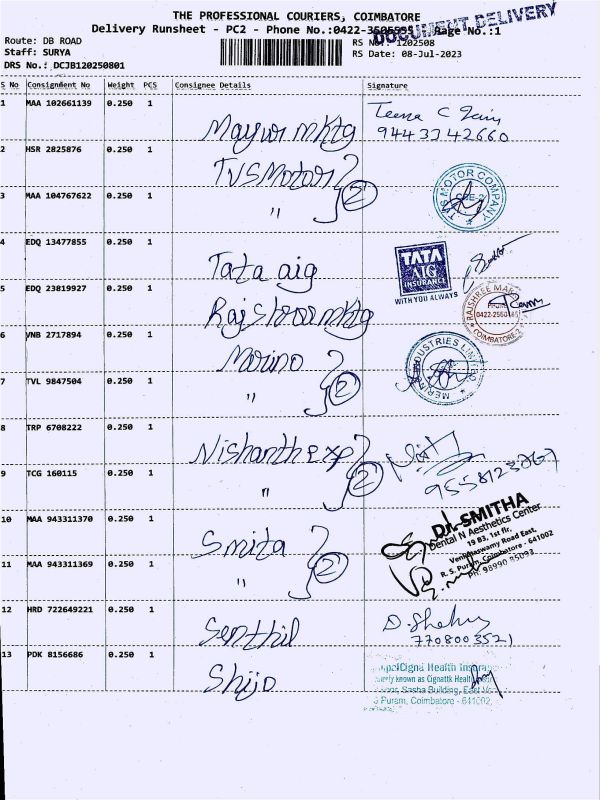 THE PROFESSIONAL COURIERS, COIMBATORE
DOCUMENT DELIVERY
Delivery Runsheet - PC2 - Phone No.:0422- Page No.:1
Route: DB ROAD
Staff: SURYA
DRS No.: DCJB120250801
RS No.: 1202508
RS Date: 08-Jul-2023
S No Consignment No Weight PCS Consignee Details Signature
1 MAA 102661139 0.250 1 Mayur mktg Teena C Jain
9443342660
2 HSR 2825876 0.250 1 TVS Motors 2
TVS MOTOR COMPANY
CBE-2
3 MAA 104767622 0.250 1 "
4 EDQ 13477855 0.250 1 Tata aig
TATA
AIG
INSURANCE
WITH YOU ALWAYS
5 EDQ 23819927 0.250 1 Rajshree mktg
RAJSHREE
COIMBATORE-2
6 VNB 2717894 0.250 1 Merino 2
MERINO INDUSTRIES LIMITED
7 TVL 9847504 0.250 1 "
8 TRP 6708222 0.250 1 Nishanth exp 2
9 TCG 160115 0.250 1 "
10 MAA 943311370 0.250 1 Smita 2
Dr. SMITHA
Dental N Aesthetics Center
19 B3, 1st flr,
Venkataswamy Road East,
R. S. Puram, Coimbatore - 641002
Ph: 98990 85093
11 MAA 943311369 0.250 1 "
12 HRD 722649221 0.250 1 Senthil
7708003521
13 PDK 8156686 0.250 1 Shijo
Health
known as Cignattk Health
Sasha Building, East
Puram, Coimbatore - 641002,